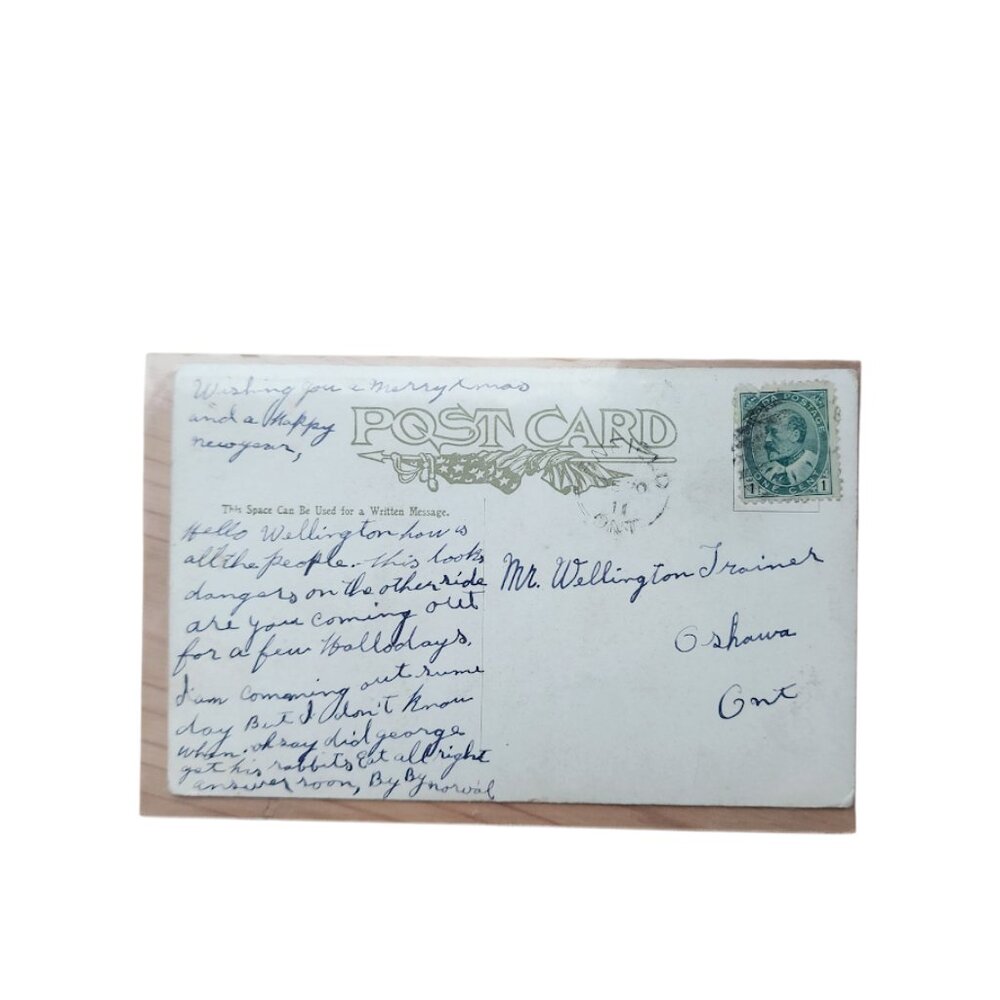 Wishing you a Merry Xmas
and a Happy
new year,
POST CARD
CANADA POSTAGE
1 ONE CENT 1
11
ONT
This Space Can Be Used for a Written Message.
Hello Wellington how is
all the people. this looks
dangers on the other side
are you coming out
for a few Hallodays.
I am comming out sume
day But I don't know
when. oh say did george
get his rabbits Eat all right
answer soon, By By norval
Mr. Wellington Trainer
Oshawa
Ont